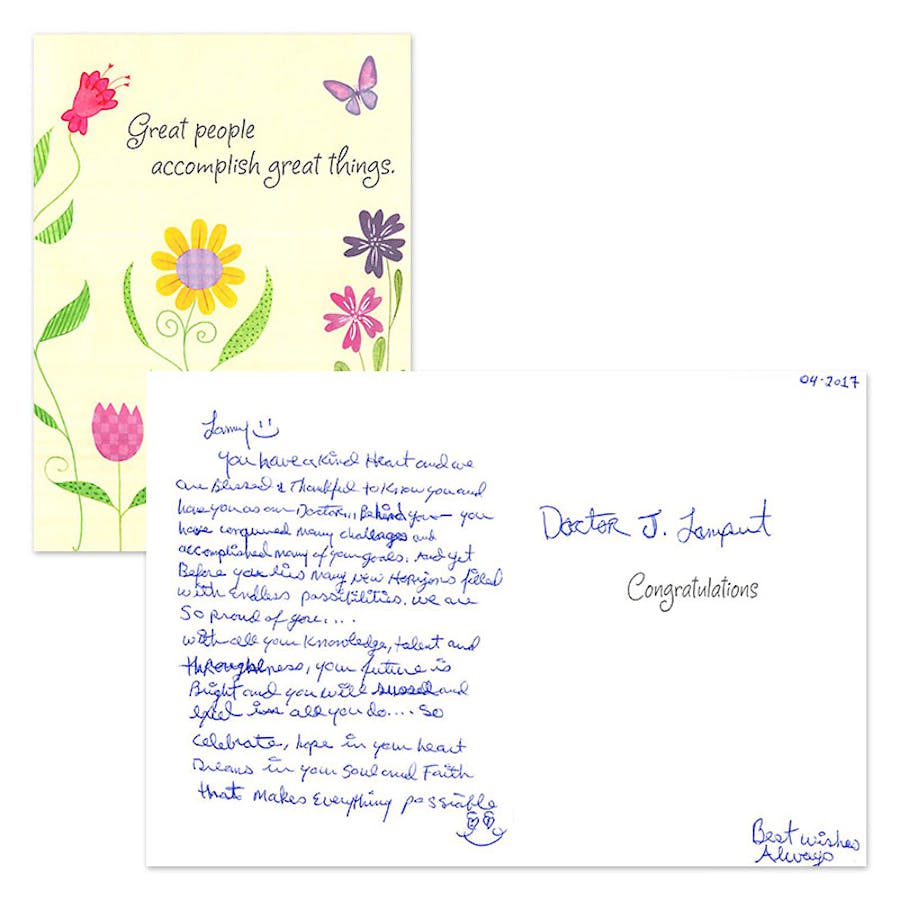 Great people
accomplish great things.
04-2017
You have a kind Heart and we
are Blessed & Thankful to know you and
have you as our Doctor... Behind you— you
have conquered many challages and
accomplished many of your goals. And yet
Before you lies many New Horizons filled
with endless possibilities. we are
So proud of you....
with all your knowledge, talent and
throughlness, your future is
Bright and you will and
excel in all you do.... So
celebrate, hope in your heart
Dreams in your Soul and Faith
that makes everything possiable
Doctor J.
Congratulations
Best wishes
Always